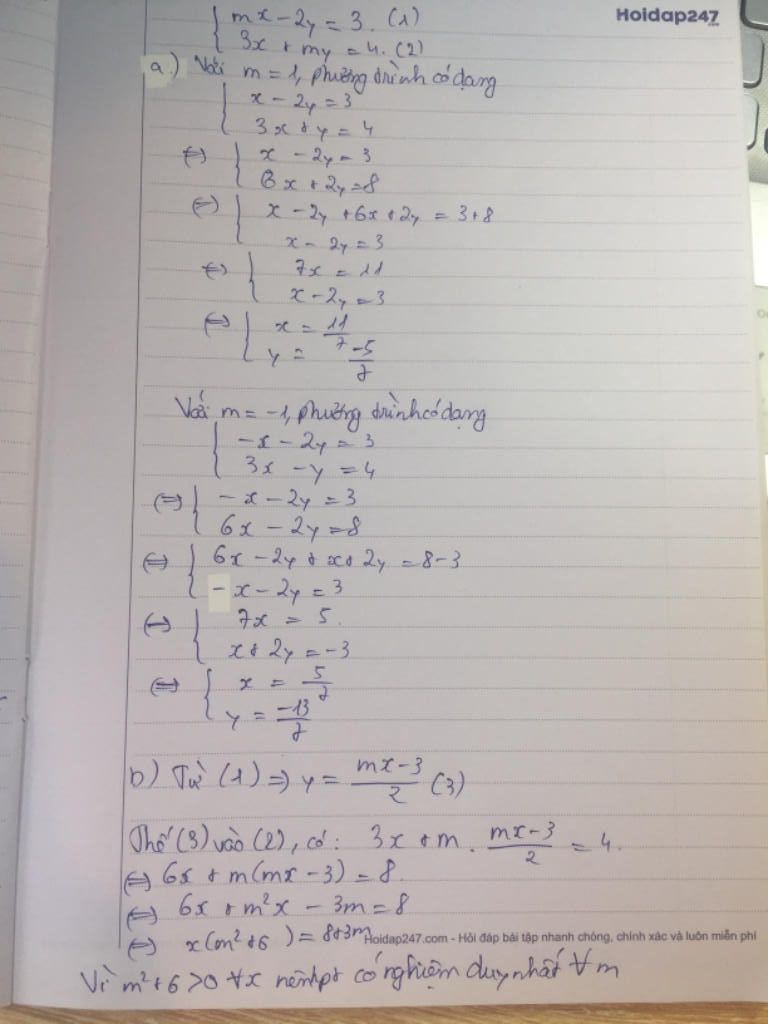 Hoidap247
.com
{ mx - 2y = 3. (1)
{ 3x + my = 4. (2)
a.) Với m = 1, phương trình có dạng
{ x - 2y = 3
{ 3x + y = 4
⇔ { x - 2y = 3
{ 6x + 2y = 8
⇔ { x - 2y + 6x + 2y = 3+8
{ x - 2y = 3
⇔ { 7x = 11
{ x - 2y = 3
⇔ { x = 11/7
{ y = -5/7
Với m = -1, phương trình có dạng
{ -x - 2y = 3
{ 3x - y = 4
⇔ { -x - 2y = 3
{ 6x - 2y = 8
⇔ { 6x - 2y + x + 2y = 8-3
{ -x - 2y = 3
⇔ { 7x = 5.
{ x + 2y = -3
⇔ { x = 5/7
{ y = -13/7
b) Từ (1) ⇒ y = (mx-3)/2 (3)
Thế (3) vào (2), có: 3x + m . (mx-3)/2 = 4.
⇔ 6x + m(mx - 3) = 8.
⇔ 6x + m²x - 3m = 8
⇔ x(m² + 6) = 8+3m
Hoidap247.com - Hỏi đáp bài tập nhanh chóng, chính xác và luôn miễn phí
Vì m² + 6 > 0 ∀x nên pt có nghiệm duy nhất ∀ m